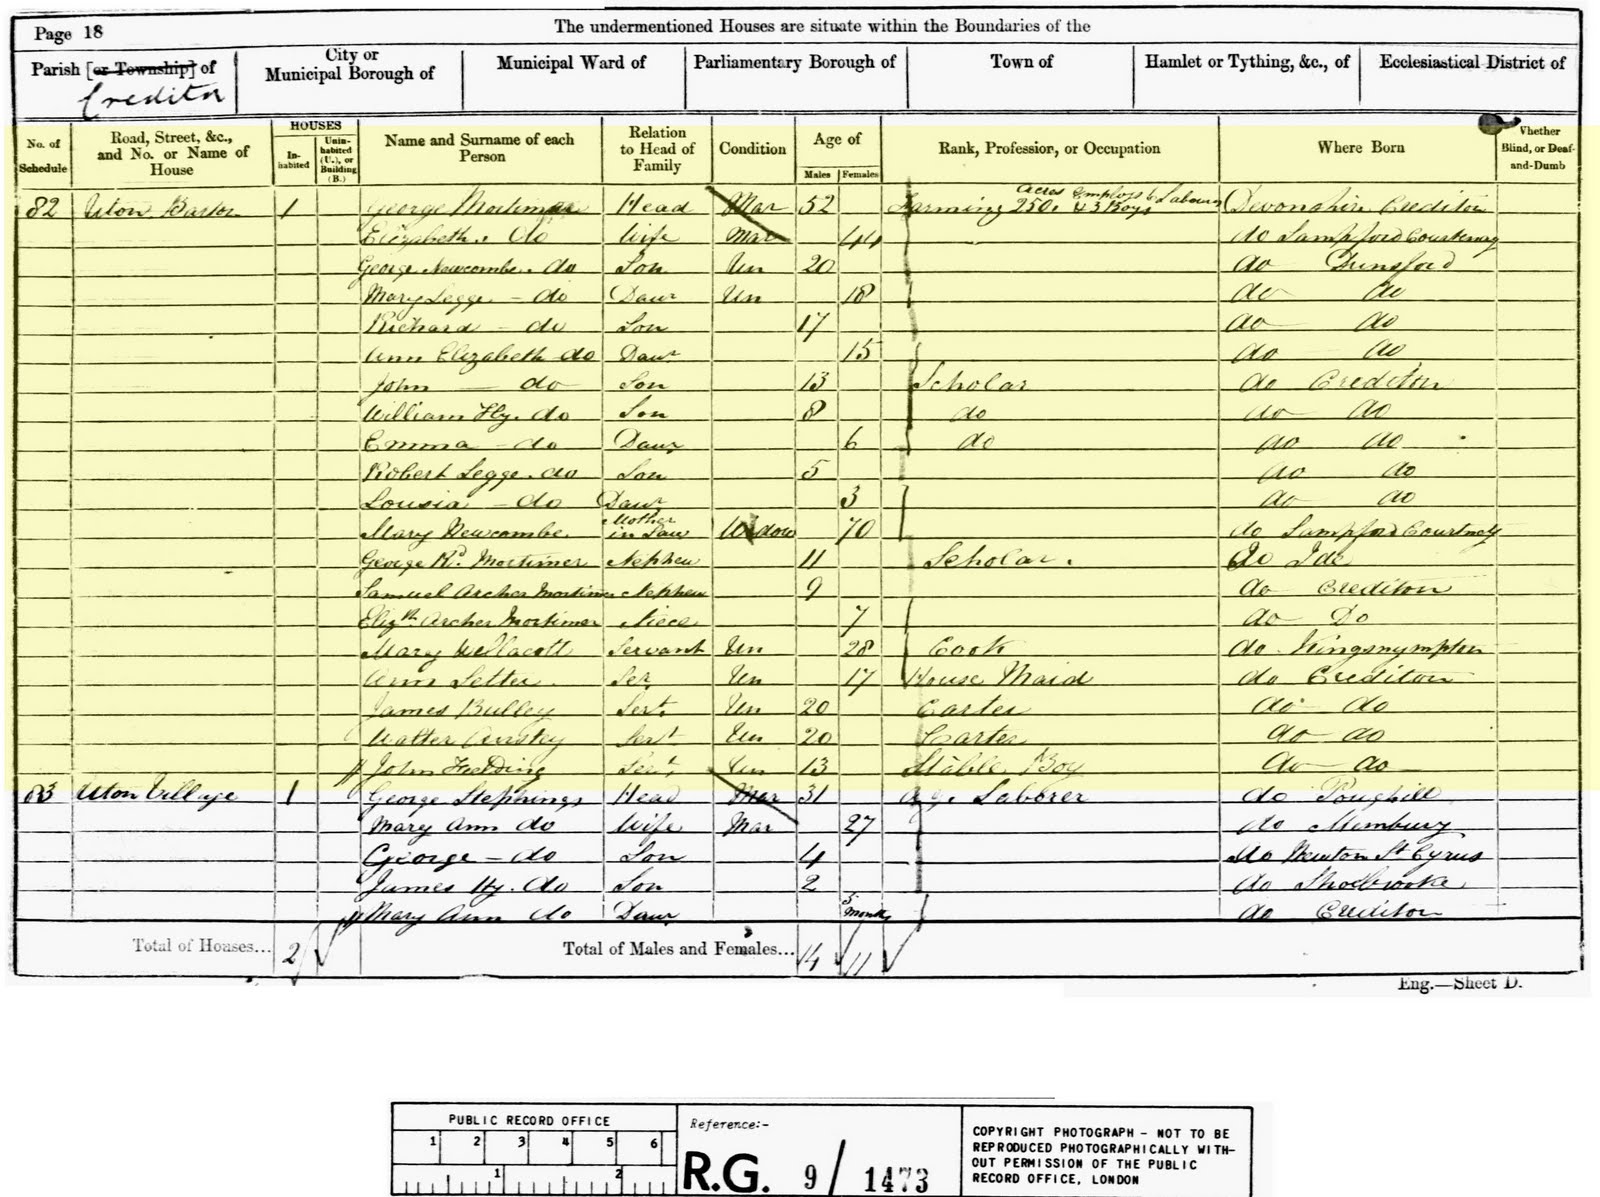 Page 18
The undermentioned Houses are situate within the Boundaries of the
Parish [or Township] of Crediton
City or Municipal Borough of
Municipal Ward of
Parliamentary Borough of
Town of
Hamlet or Tything, &c., of
Ecclesiastical District of
No. of Schedule
Road, Street, &c., and No. or Name of House
HOUSES
In-habited
Unin-habited (U.), or Building (B.)
Name and Surname of each Person
Relation to Head of Family
Condition
Age of
Males Females
Rank, Profession, or Occupation
Where Born
Whether Blind, or Deaf-and-Dumb
82 Uton Barton 1 George Mortimer Head Mar 52 Farming 250 acres employs 6 Labours & 3 Boys Devonshire Crediton
Elizabeth do Wife Mar 44 do Sampford Courtenay
George Newcombe do Son Un 20 do Dunsford
Mary Legge - do Daur Un 18 do do
Richard - do Son 17 do do
Ann Elizabeth do Daur 15 do do
John - do Son 13 Scholar do Crediton
William Hy. do Son 8 do do do
Emma - do Daur 6 do do do
Robert Legge do Son 5 do do
Lousia - do Daur 3 do do
Mary Newcombe Mother in Law Widow 70 do Sampford Courtney
George Rd. Mortimer Nephew 11 Scholar. do Ide
Samuel Archer Mortimer Nephew 9 do Crediton
Elizth Archer Mortimer Niece 7 do Do
Mary Wollacott Servant Un 28 Cook do Kingsnympton
Ann Setter Ser Un 17 House Maid do Crediton
James Bulley Sert. Un 20 Carter do do
Walter Sert Un 20 Carter do do
John Fielding Sert. Un 13 Stable Boy do do
83 Uton Village 1 George Stephings Head Mar 31 Ag. Laborer do Poughill
Mary Ann do Wife Mar 27 do Membury
George - do Son 4 do Newton St Cyrus
James Hy. do Son 2 do Shobrooke
Mary Ann do Daur 5 Months do Crediton
Total of Houses... 2 Total of Males and Females... 14 11
Eng.—Sheet D.
PUBLIC RECORD OFFICE
1 2 3 4 5 6
1 2
Reference:-
R.G. 9/1473
COPYRIGHT PHOTOGRAPH - NOT TO BE
REPRODUCED PHOTOGRAPHICALLY WITH-
OUT PERMISSION OF THE PUBLIC
RECORD OFFICE, LONDON